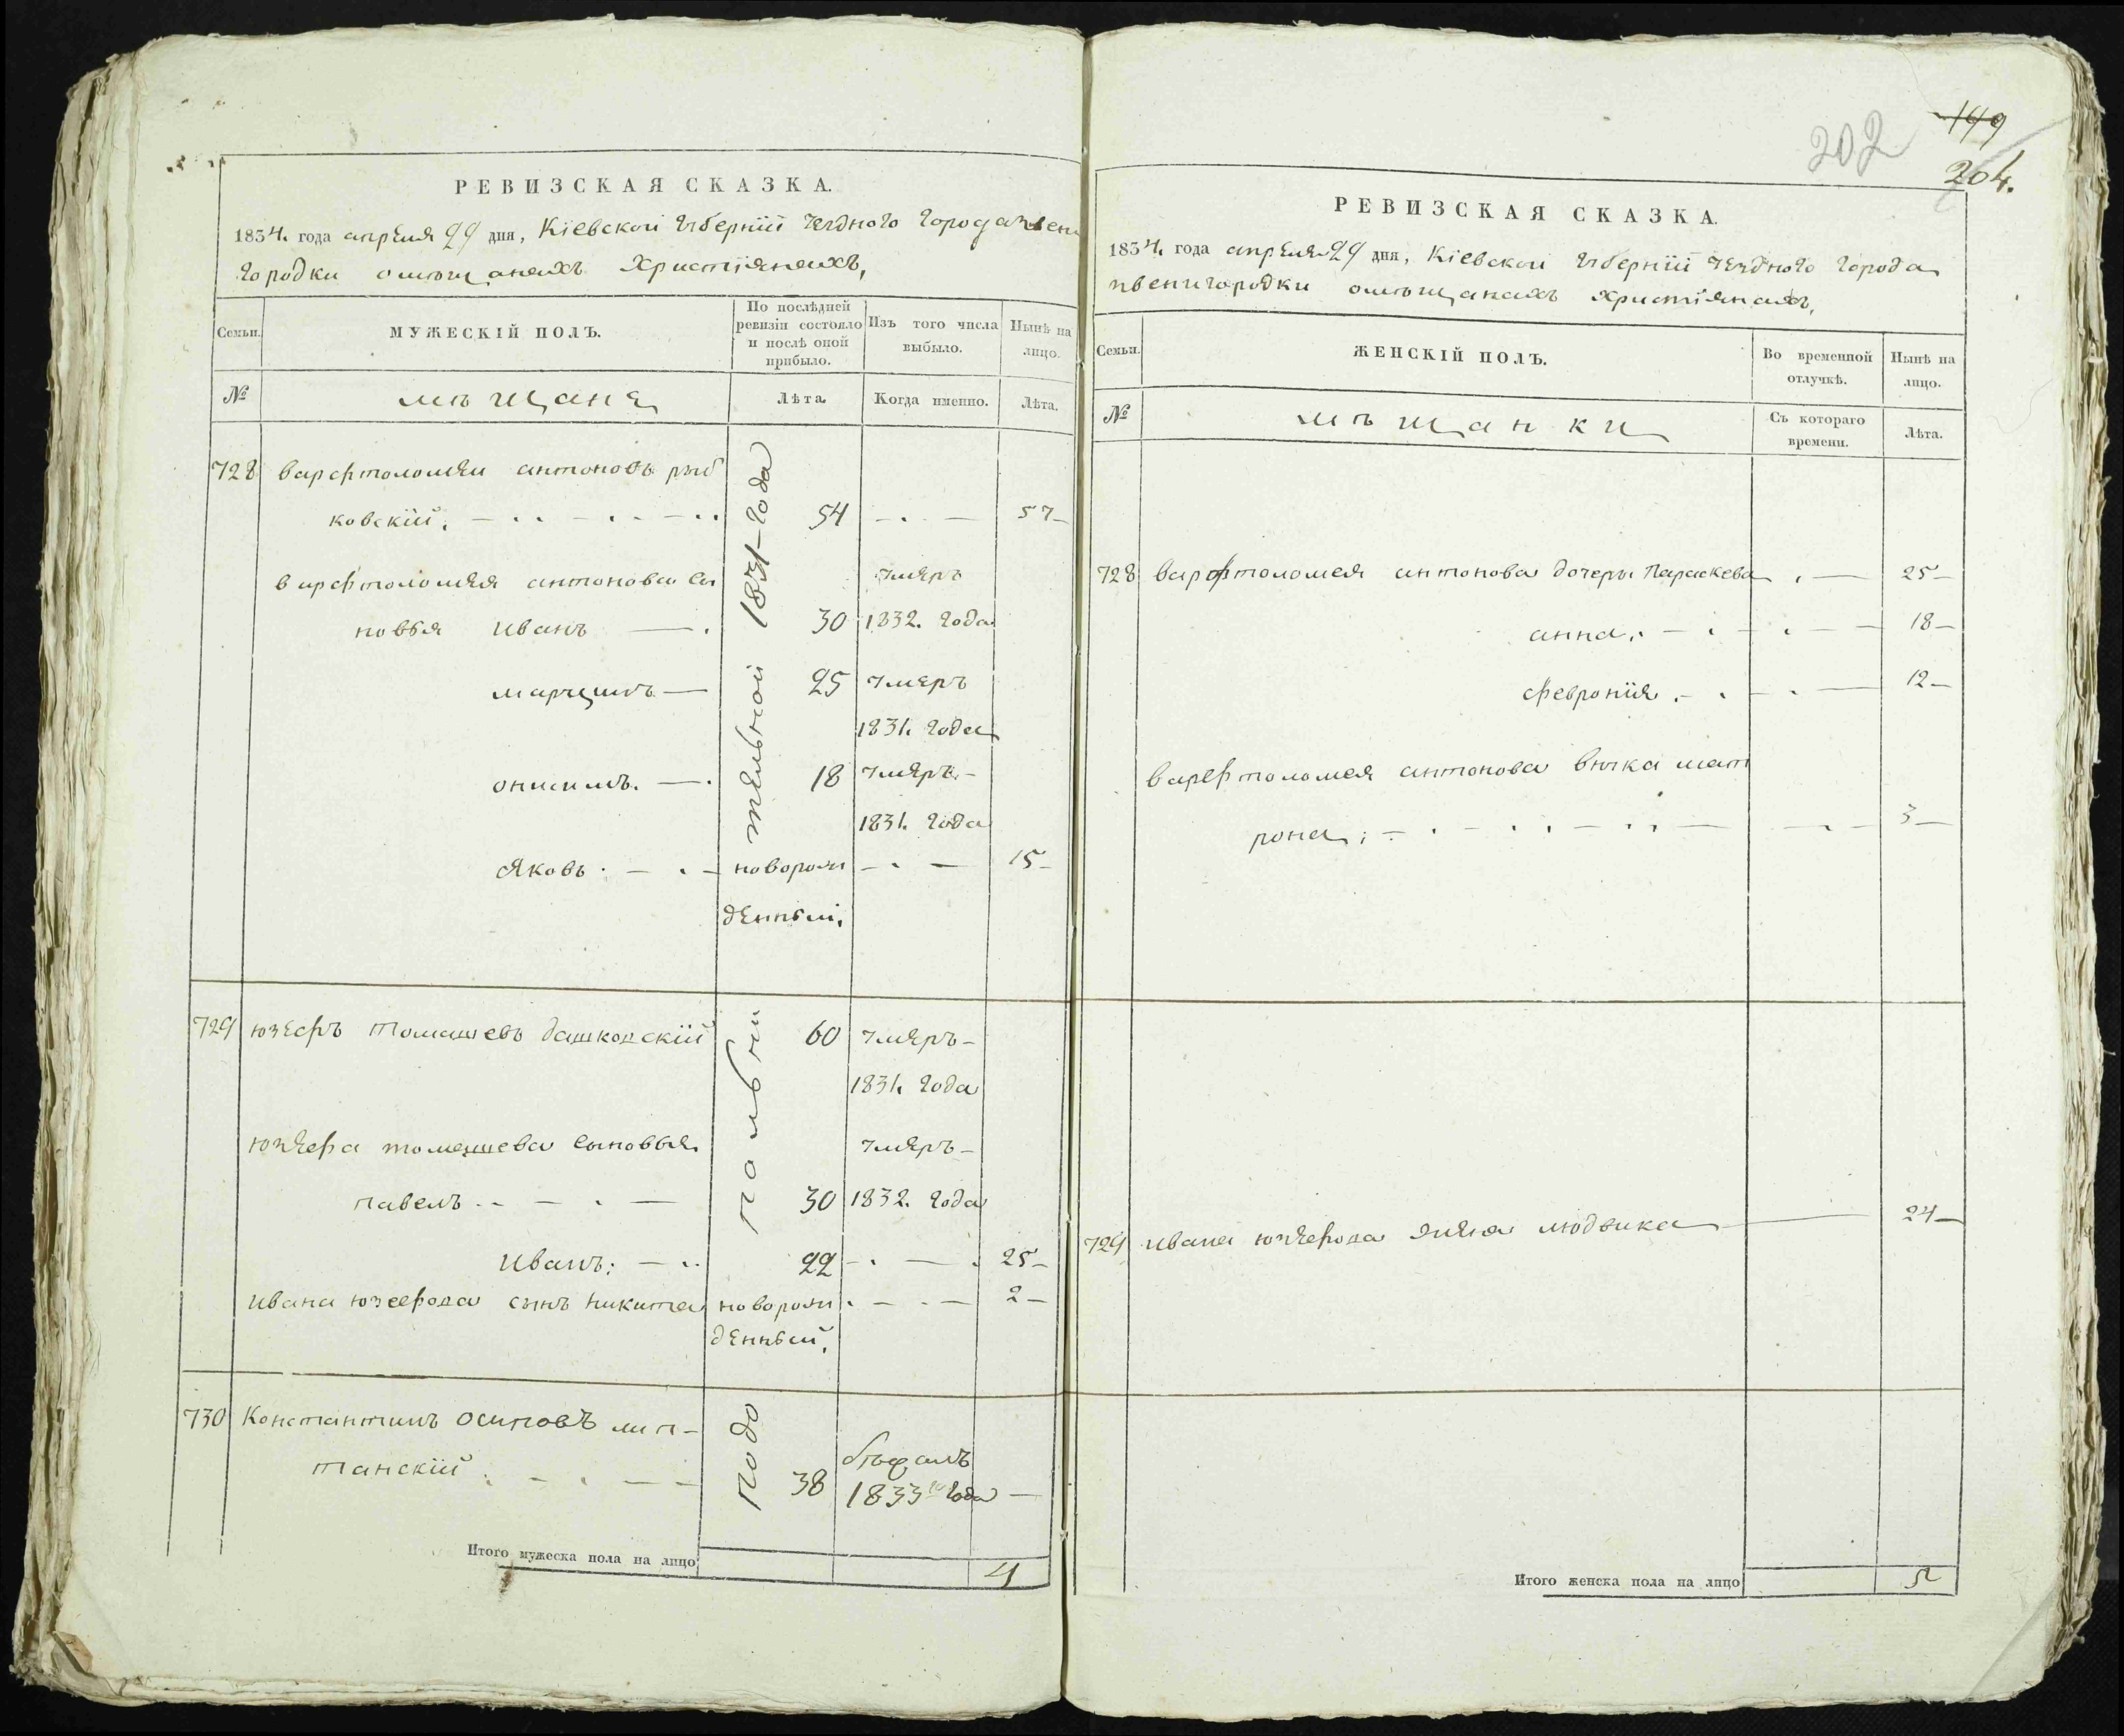 РЕВИЗСКАЯ СКАЗКА.
1834. года апреля 29 дня, Кіевской Губерніи уездного города звени
городки омѣщанахъ христіянахъ,
Семьи.
МУЖЕСКІЙ ПОЛЪ.
По послѣдней
ревизіи состояло
и послѣ оной
прибыло.
Изъ того числа
выбыло.
Нынѣ на
лицо.
№
мѣщане
Лѣта
Когда именно.
Лѣта.
подополнительной 1831 года
728 варфтоломеи антоновъ рыб
ковскій. 54 57
варфтоломея антонова сы
умеръ
новъя иванъ 30 1832. года
марцинъ 25 умеръ
1831. года
онисимъ. 18 умеръ.
1831. года
Яковъ новорож 15
денный.
729 юзефъ томашевъ дашковскій 60 умеръ
1831. года
юзефа томашева сыновья
умеръ
павелъ 30 1832. года
иванъ. 22 25
ивана юзефова сынъ никита новорож 2
денный.
730 Константинъ осиповъ лип-
танскій 38 бѣжалъ
1833го года
Итого мужеска пола на лицо 4
202
199
204.
РЕВИЗСКАЯ СКАЗКА.
1834. года апреля 29 дня, Кіевской Губерніи уездного города
звенигородки омѣщанахъ христіянахъ,
Семьи.
ЖЕНСКІЙ ПОЛЪ.
Во временной
отлучкѣ.
Нынѣ на
лицо.
№
мѣщанки
Съ котораго
времени.
Лѣта.
728 варфтоломея антонова дочеры Параскева 25
анна. 18
феврония 12
варфтоломея антонова внучка мат
рона. 3
729 ивана юзефова жена людвика 24
Итого женска пола на лицо 5